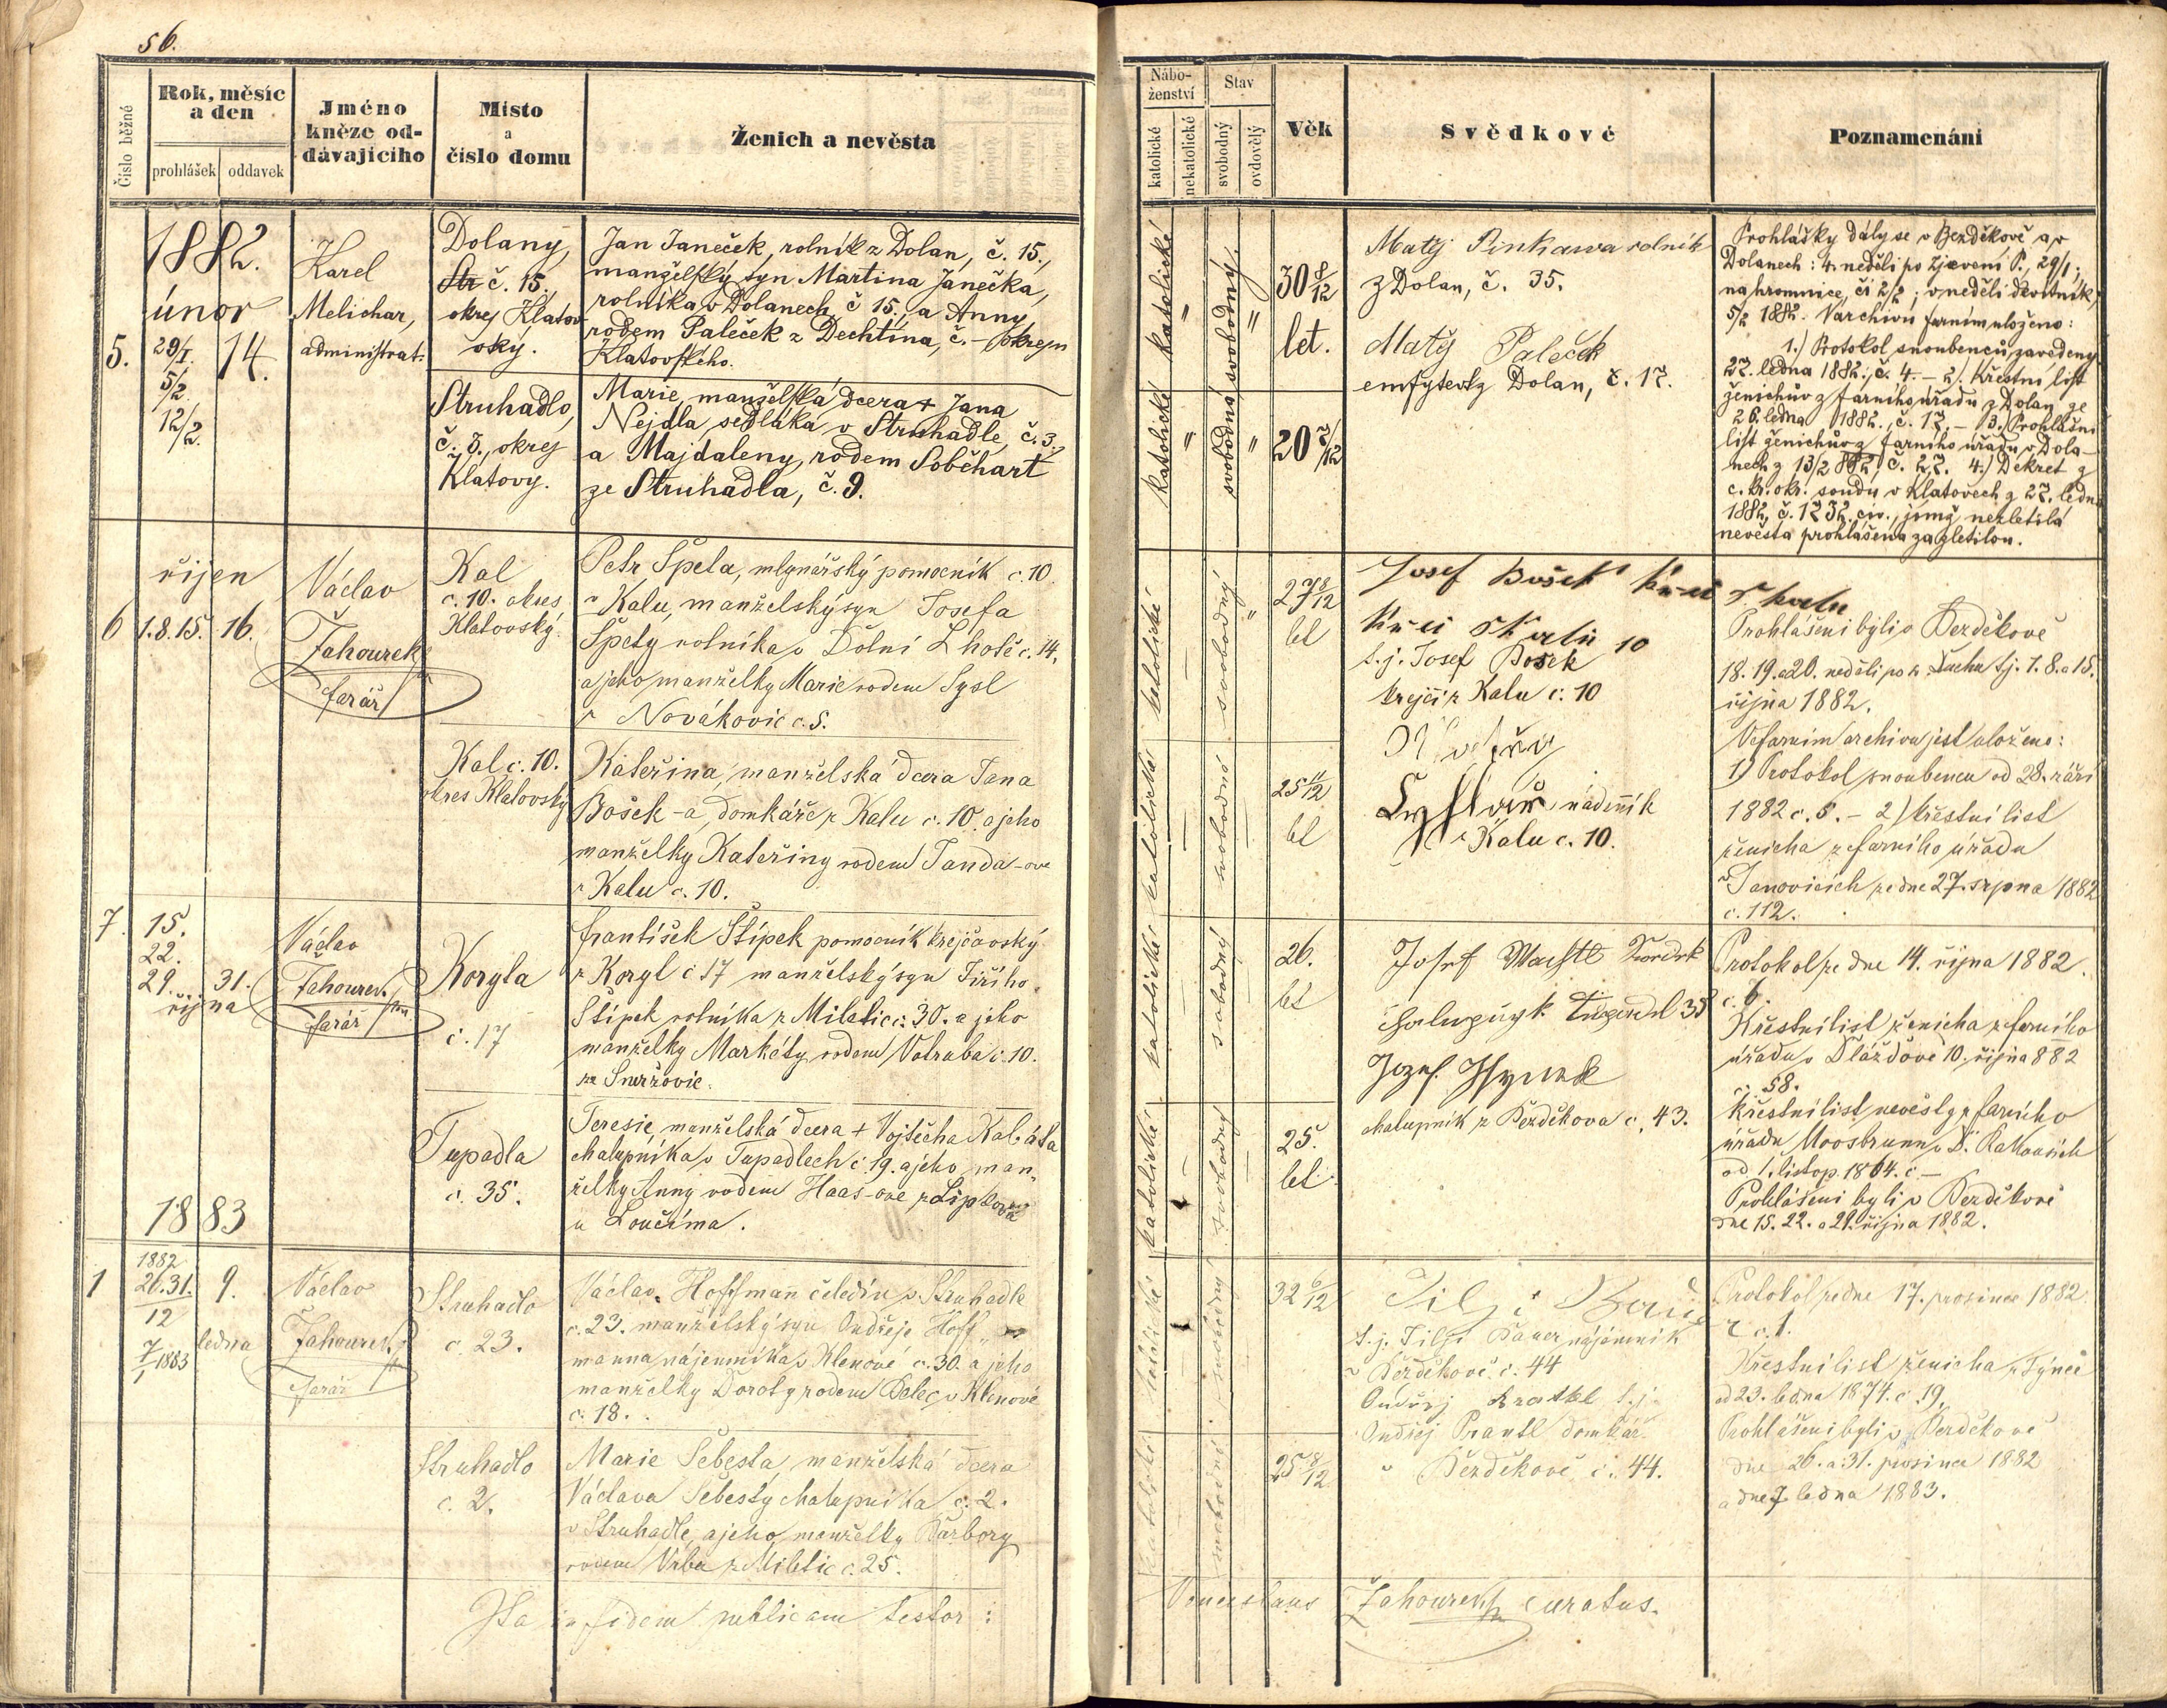 56.
Číslo běžné
Rok, měsíc
a den
prohlášek oddavek
Jméno
kněze od-
dávajícího
Místo
a
číslo domu
Ženich a nevěsta
1882.
únor
5.
29/I.
5/2.
12/2.
14.
Karel
Melichar,
administrat.
Dolany,
č. 15,
okrej Klatov
sky.
Jan Janeček, rolník z Dolan, č. 15.,
manželský syn Martina Janečka,
rolníka v Dolanech, č 15., a Anny
rodem Paleček z Dechtína, č. – okresu
Klatovského.
Struhadlo,
č. 3., okrej
Klatovy.
Marie, manželská dcera + Jana
Nejdla sedláka v Struhadle, č. 3.,
a Majdaleny, rodem Soběhart
ze Struhadla, č. 9.
říjen
6 1.8.15. 16.
Václav
Žahourek
farář
Kal
č. 10. okres
Klatovský.
Petr Špela, mlynářský pomocník č. 10.
v Kalu, manželský syn Josefa
Špely rolníka v Dolní Lhotě č. 14,
a jeho manželky Marie rodem Sysl
z Novákovic č. 5.
Kal č. 10.
okres Klatovský
Kateřina, manželská dcera Jana
Bošek-a, domkáře z Kalu č. 10. a jeho
manželky Kateřiny rodem Janda-ove
z Kalu č. 10.
7. 15.
22.
29. 31.
října
Václav
Žahourek
farář
Koryta
č. 17
František Štípek pomocník krejčovský
z Koryt č 17 manželský syn Jiřího
Štípek rolníka z Miletic č. 30. a jeho
manželky Markéty rodem Votruba č. 10.
ze Smržovic.
Tupadla
č. 35.
Teresie, manželská dcera + Vojtěcha Kabáta
chalupníka v Tupadlech č. 19. a jeho man-
želky Anny rodem Haas-ove z
u Loučíma.
1883
1 1882
26.31.
12
7/1 1883
9.
ledna
Václav
Žahourek
farář
Struhadlo
č. 23.
Václav Hoffman čeledín v Struhadle
č. 23. manželský syn Ondřeje Hoff-
manna nájemníka v Klenové č. 30. a jeho
manželky Doroty rodem Belec v Klenové
č. 18.
Struhadlo
č. 2.
Marie Šebesta, manželská dcera
Václava Šebesty chalupníka č. 2.
v Struhadle, a jeho manželky Barbory
rodem Vrba z Miletic č. 25.
Ita in fidem publicam testor:
Nábo-
ženství
katolické
nekatolické
Stav
svobodný
ovdovělý
Věk
Svědkové
Poznamenáni
katolické
svobodný
30 8/12
let.
katolické
svobodná
20 7/12
Matěj Pinkawa rolník
z Dolan, č. 35.
Matěj Paleček
emfytevt z Dolan, č. 17.
Prohlášky dály se v Bezděkově a v
Dolanech: 4. neděli po Zjevení P., 29/1;
na hromnice, čí 2/2; v neděli devítník,
5/2 1882. V archivu farním uloženo:
1.) Protokol snoubenců zavedeny
27. ledna 1882, č. 4. – 2). Křestní list
ženichův z farního úřadu z Dolan ze
26. ledna 1882., č. 17. – 3. Prohlášní
list ženichův z farního úřadu v Dola-
nech z 13/2 882, č. 27. 4.) Dekret z
c. kr. okr. soudu v Klatovech z 27. ledna
1882, č. 1232. civ., jímž nezletilá
nevěsta prohlášena za zletilou.
katolické
svobodný
27 8/12
let
Josef Bošek
10
t. j. Josef Bošek
krejčí z Kalu č. 10
katolická
svobodná
25 11/12
let
nádenník
z Kalu č. 10.
Prohlášeni byli v Bezděkově
18. 19. a 20. neděli po sv. Duchu t.j. 1. 8. a 15.
října 1882.
Ve farním archivu jest uloženo:
1) Protokol snoubenců od 28. září
1882 č. 5. – 2) křestní list
ženicha z farního úřadu
v Janovicích ze dne 27. srpna 1882
č. 112.
katolické
svobodný
26.
let
Josef
35
Jozef Hynek
chalupník z Bezděkova č. 43.
katolické
svobodný
25.
let
Protokol ze dne 14. října 1882.
č. 6.
Křestní list ženicha z farního
úřadu v Dlážďově 10. října 882
č. 58.
Křestní list nevěsty z farního
úřadu Moosbrunn v D. Rakousích
od 1. listop. 1864. č –
Prohlášeni byli v Bezděkově
dne 15. 22. a 29. října 1882.
katolické
svobodný
32 6/12
t. j. Bauer nájemník
v Bezděkově č. 44
t. j.
Ondřej Prantl domkář
v Bezděkově č. 44.
katolické
svobodná
25 8/12
Protokol ze dne 17. prosince 1882
č. 1.
Křestní list ženicha z Týnce
od 23. ledna 1874. č 19.
Prohlášeni byli v Bezděkově
dne 26. a 31. prosince 1882
a dne 7 ledna 1883.
Venceslaus Žahourek curatus.